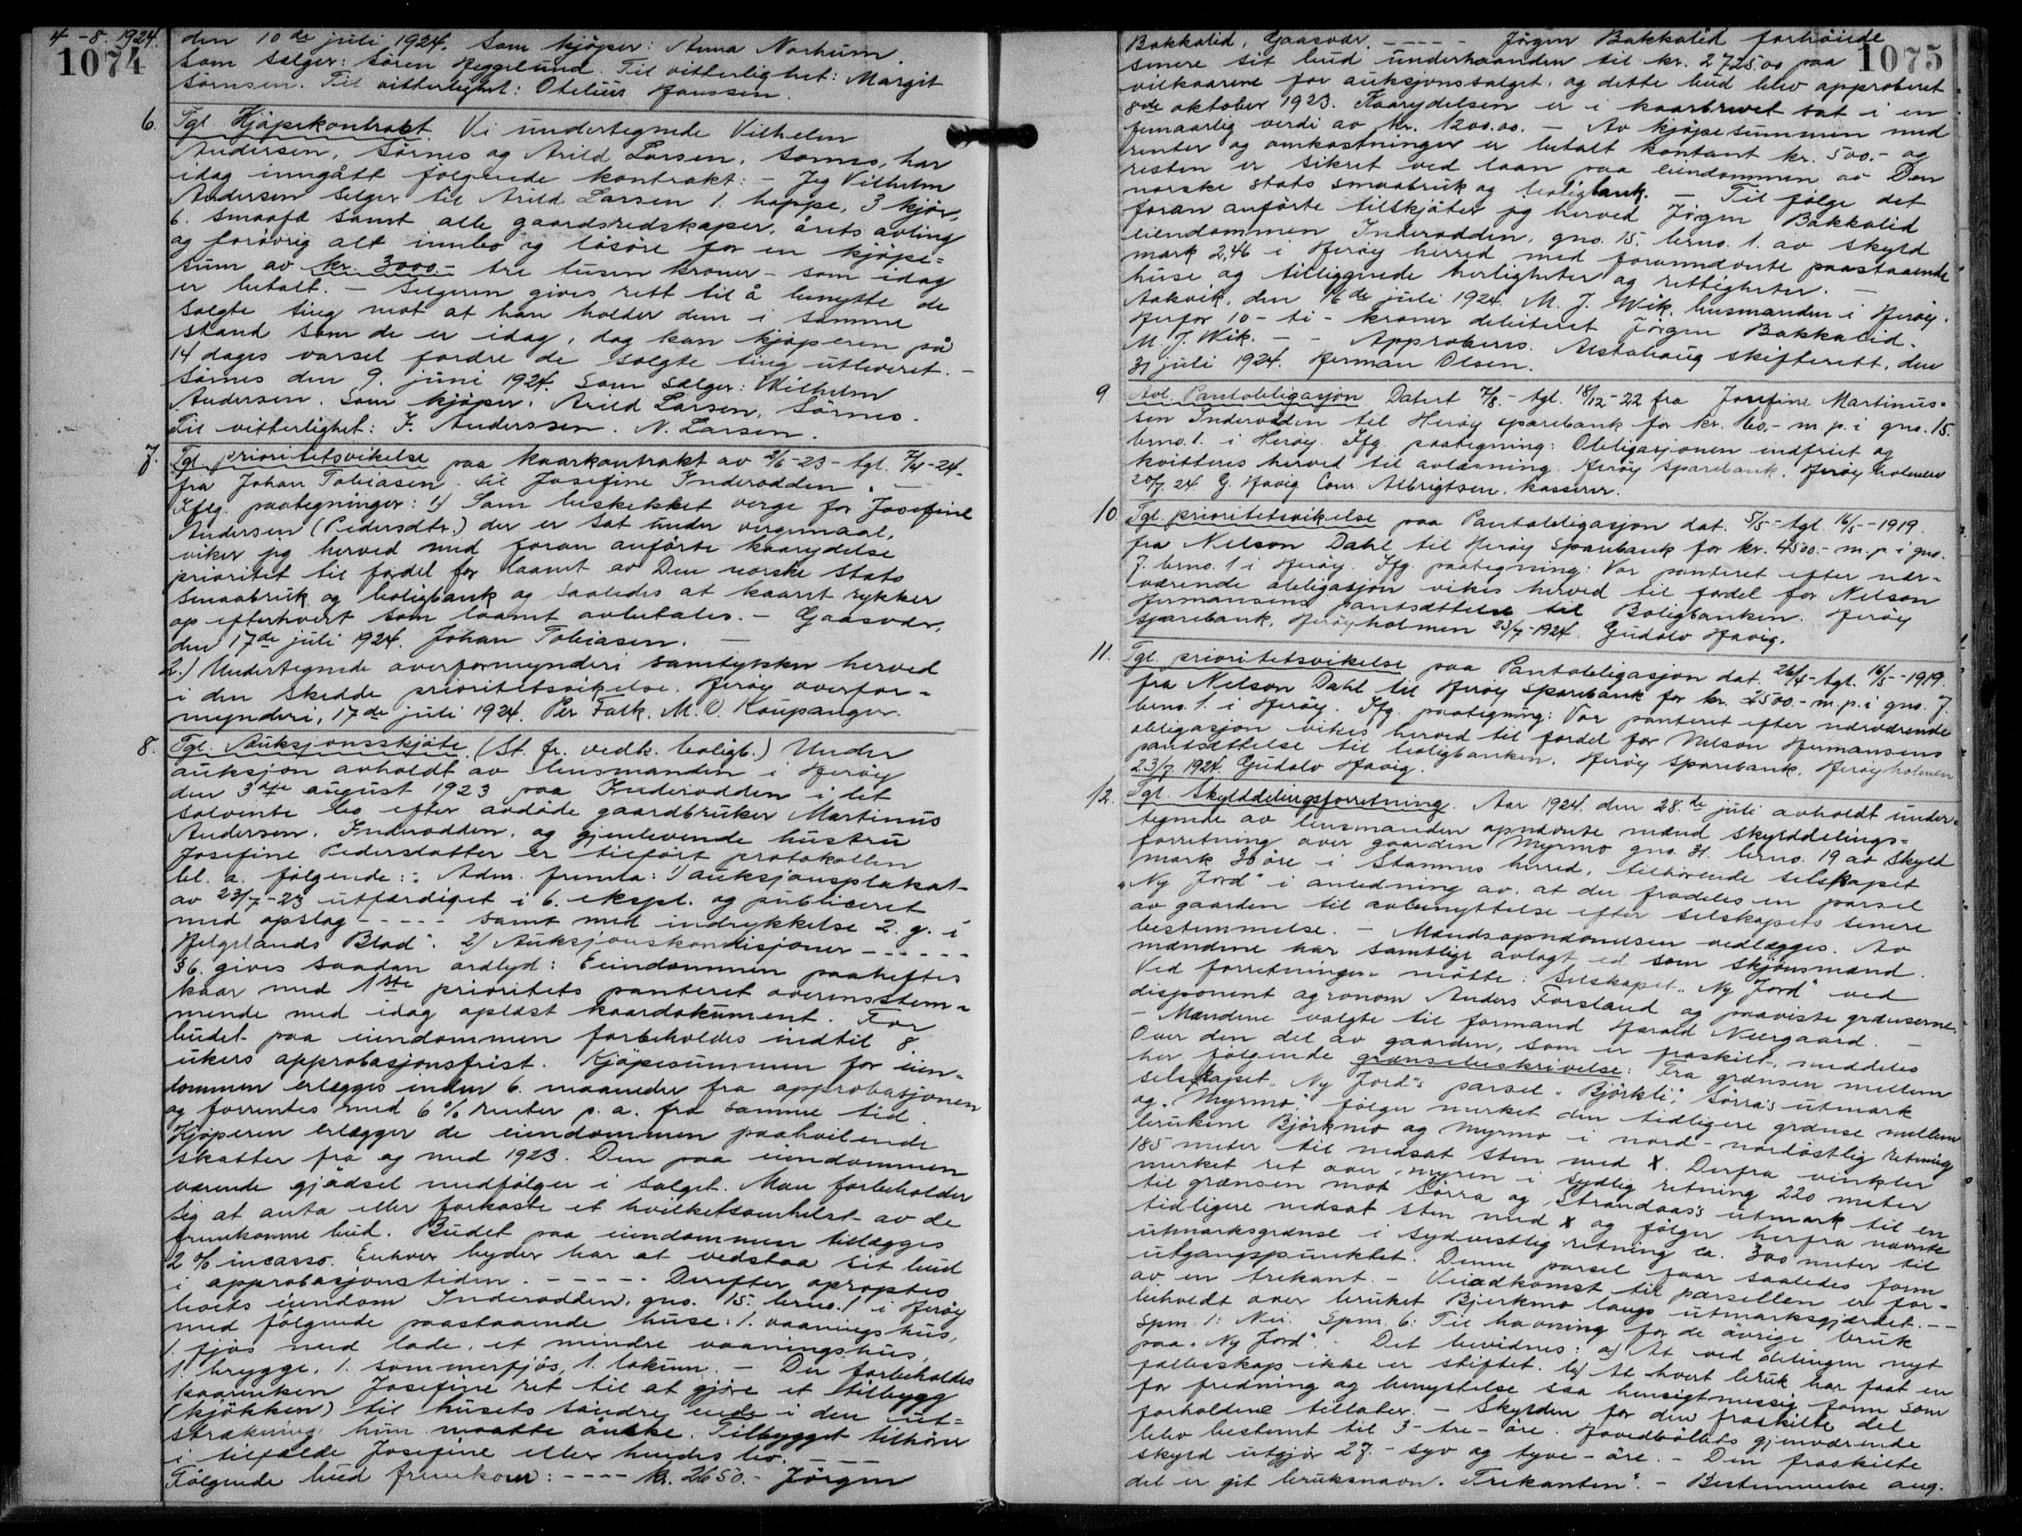 4-8. 1924.
1074
den 10de juli 1924. Som kjöper: Anna Norhum.
Som selger: Sören Heggelund. Til vitterlighet: Margit
Sörnsen. Til vitterlighet: Otelius Hanssen.
6. Tgl. Kjöpekontrakt. Vi undertegnede Vilhelm
Andersen, Sörnes og Arild Larsen, Sörnes, har
idag inngått fölgende kontrakt: - Jeg Vilhelm
Andersen selger til Arild Larsen 1 hoppe, 3 kjör,
6. smaafæ samt alle gaardsredskaper, årets avling
og forövrig alt innbo og lösöre for en kjöpe-
sum av kr. 3000.- tre tusen kroner - som idag
er betalt. - Selgeren gives rett til å benytte de
solgte ting mot at han holder dem i samme
stand som de er idag, dog kan kjöperen på
14 dages varsel fordre de solgte ting utleveret. -
Sörnes den 9. juni 1924. Som selger: Wilhelm
Andersen. Som kjöper: Arild Larsen, Sörnes.
Til vitterlighet: F. Anderssen. N. Larsen.
7. Tgl. prioritetsvikelse paa kaarkontrakt av 2/6-23 - tgl. 7/4-24.
fra Johan Tobiasen til Josefine Inderodden. -
Iflg. paategninger: 1) Som beskikket verge for Josefine
Andersen (Pedersdtr.) der er sat under vergemaal,
viker jeg herved med foran anförte kaarydelse
prioritet til fordel for laanet av Den norske Stats
Smaabruk og boligbank og saaledes at kaaret rykker
op efterhvert som laanet avbetales. - Gaasvær,
den 17de juli 1924. Johan Tobiasen. -
2.) Undertegnede overformynderi samtykker herved
i den skedde prioritetsvikelse. Heröy overfor-
mynderi, 17de juli 1924. Per Falk. M. O. Kaupanger.
8. Tgl. Auksjonsskjöte. (St. fr. vedk. boligb.) Under
auksjon avholdt av lensmanden i Heröy
den 3dje august 1923 paa Inderodden i det
solvente bo efter avdöde gaardbruker Martinus
Andersen, Inderodden, og gjenlevende hustru
Josefine Pedersdatter er tilfört protokollen
bl. a. fölgende: Adm. fremla: 1) auksjonsplakat
av 23/7-23 utfærdiget i 6. ekspl. og publiceret
med opslag - - - - - samt med indrykkelse 2. g. i
Helgelands Blad". 2) Auksjonskondisjoner - - - - - -
§ 6. gives saadan ordlyd: Eiendommen paaheftes
kaar med 1ste prioritets panteret overensstem-
mende med idag oplæst kaardokument. For
budet paa eiendommen forbeholdes indtil 8
ukers approbasjonsfrist. Kjöpesummen for eien-
dommen erlægges inden 6. maaneder fra approbasjonen
og forrentes med 6 % renter p. a. fra samme tid.
Kjöperen erlægger de eiendommen paahvilende
skatter fra og med 1923. Den paa eiendommen
værende gjödsel medfölger i salget. Man forbeholder
sig at anta eller forkaste et hvilketsomhelst av de
fremkomne bud. Budet paa eiendommen tillægges
2 % incasso. Enhver byder har at vedstaa sit bud
i approbasjonstiden. - - - - - Derefter opropes
boets eiendom Inderodden, gno. 15. brno. 1 i Heröy
med fölgende paastaaende huse: 1. vaaningshus,
1. fjös med lade, et mindre vaaningshus,
1. brygge, 1. sommerfjös, 1. lokum. - Der forbeholdes
kaarenken Josefine ret til at gjöre et tilbygg
(kjökken) til husets söndre ende i den ut-
strækning hun maatte önske. Tilbygget tilhörer
i tilfælde Josefine eller hendes bo.
Fölgende bud fremkom: - - - - kr. 2650.- Jörgen
1075
Bakkalid, Gaasvær. - - - - - Jörgen Bakkalid forhöiede
senere sit bud underhaanden til kr. 2725.00 paa
vilkaarene for auksjonssalget, og dette bud blev approberet
8de oktober 1923. Kaarydelsen er i kaarbrevet sat i en
femaarlig verdi av kr. 1200.00. - Av kjöpesummen med
renter og omkostninger er betalt kontant kr. 500.- og
resten er sikret ved laan paa eiendommen av Den
norske stats smaabruk og boligbank. - Til fölge det
foran anförte tilskjöter jeg herved Jörgen Bakkalid
eiendommen Inderodden, gno. 15. brno. 1. av skyld
mark 2,46 i Heröy herred med forannævnte paastaaende
huse og tilliggende herligheter og rettigheter. -
Aakvik, den 16de juli 1924. M. J. Wik, lensmanden i Heröy.
Herfor 10 - ti - kroner debiteret Jörgen Bakkalid.
M. J. Wik. - - Approberes. Alstahaug skifterett, den
31 juli 1924. Herman Olsen.
9 Avl. Pantobligasjon Datert 7/8. - tgl. 18/12-22 fra Josefine Martinus-
sen Inderodden til Heröy sparebank for kr. 160.- m. p. i gno. 15.
brno. 1. i Heröy. Ifg. paategning: Obligasjonen indfriet og
kvitteres herved til avlæsning. Heröy Sparebank, Heröyholmen
20/7. 24. G. Havig Conr. Albrigtsen, kasserer.
10. Tgl. prioritetsvikelse paa Pantobligasjon dat. 5/5 - tgl. 16/5-1919.
fra Nelson Dahl til Heröy Sparebank for kr. 4500.- m. p. i gno.
7. brno. 1 i Heröy. Ifg. paategning: Vor panteret efter nær-
værende obligasjon vikes herved til fordel for Nelson
Hermansens pantsættelse til Boligbanken. Heröy
Sparebank, Heröyholmen 23/7-1924. Gudolv Havig.
11. Tgl. prioritetsvikelse paa Pantobligasjon dat. 26/4 - tgl. 16/5-1919.
fra Nelson Dahl til Heröy Sparebank for kr. 2500.- m. p. i gno. 7.
brno. 1. i Heröy. Ifg. paategning: Vor panteret efter nærværende
obligasjon vikes herved til fordel for Nelson Hermansens
pantsettelse til boligbanken. Heröy Sparebank, Heröyholmen
23/7. 1924. Gudolv Havig.
12. Tgl. Skylddelingsforretning. Aar 1924. den 28.de juli avholdt under-
tegnede av lensmanden opnævnte mænd skylddelings-
forretning over gaarden Myrmo gno. 31. brno. 19 av skyld
mark 30 öre i Stamnes herred, tilhörende selskapet
"Ny Jord" i anledning av, at der fradeles en parsel
av gaarden til avbenyttelse efter selskapets senere
bestemmelse. - Mændsopnævnelsen vedlægges. Av
mændene har samtlige avlagt ed som skjönsmænd.
Ved forretningen mötte: Selskapet "Ny Jord" ved
disponent agronom Anders Forsland og paaviste grænserne.
- Mændene valgte til formand Harald Neergaard. -
Over den del av gaarden, som er fraskilt, meddeles
her fölgende grænsebeskrivelse: Fra grænsen mellem
selskapet "Ny Jord"s parsel "Björkli", Sörra's utmark
og "Myrmo", fölger merket den tidligere grænse mellem
brukene Björkmo og Myrmo i nord-nordöstlig retning
185 meter til nedsat sten med X. Derfra vinkler
merket ret over myren i sydlig retning 220 meter
til grænsen mot Sörra og Strandaas's utmark til en
tidligere nedsat sten med X og fölger herfra nævnte
utmarksgrænse i sydvestlig retning ca. 300 meter til
utgangspunktet. Denne parsel faar saaledes form
av en trekant. - Veiadkomst til parsellen er for-
beholdt over bruket Bjerkmo langs utmarksgjærdet. - -
Spm. 1: Nei. Spm. 6: Til havning for de övrige bruk
paa "Ny Jord". Det bevidnes: a) At ved delingen nyt
fællesskap ikke er stiftet. b) At hvert bruk har faat en
for fredning og benyttelse saa hensigtmessig form som
forholdene tillater. - Skylden for den fraskilte del
blev bestemt til 3 - tre - öre. Hovedbölets gjenværende
skyld utgjör 27. - syv og tyve - öre. - Den fraskilte
del er git bruksnavn "Trekanten". - Bestemmelse ang.